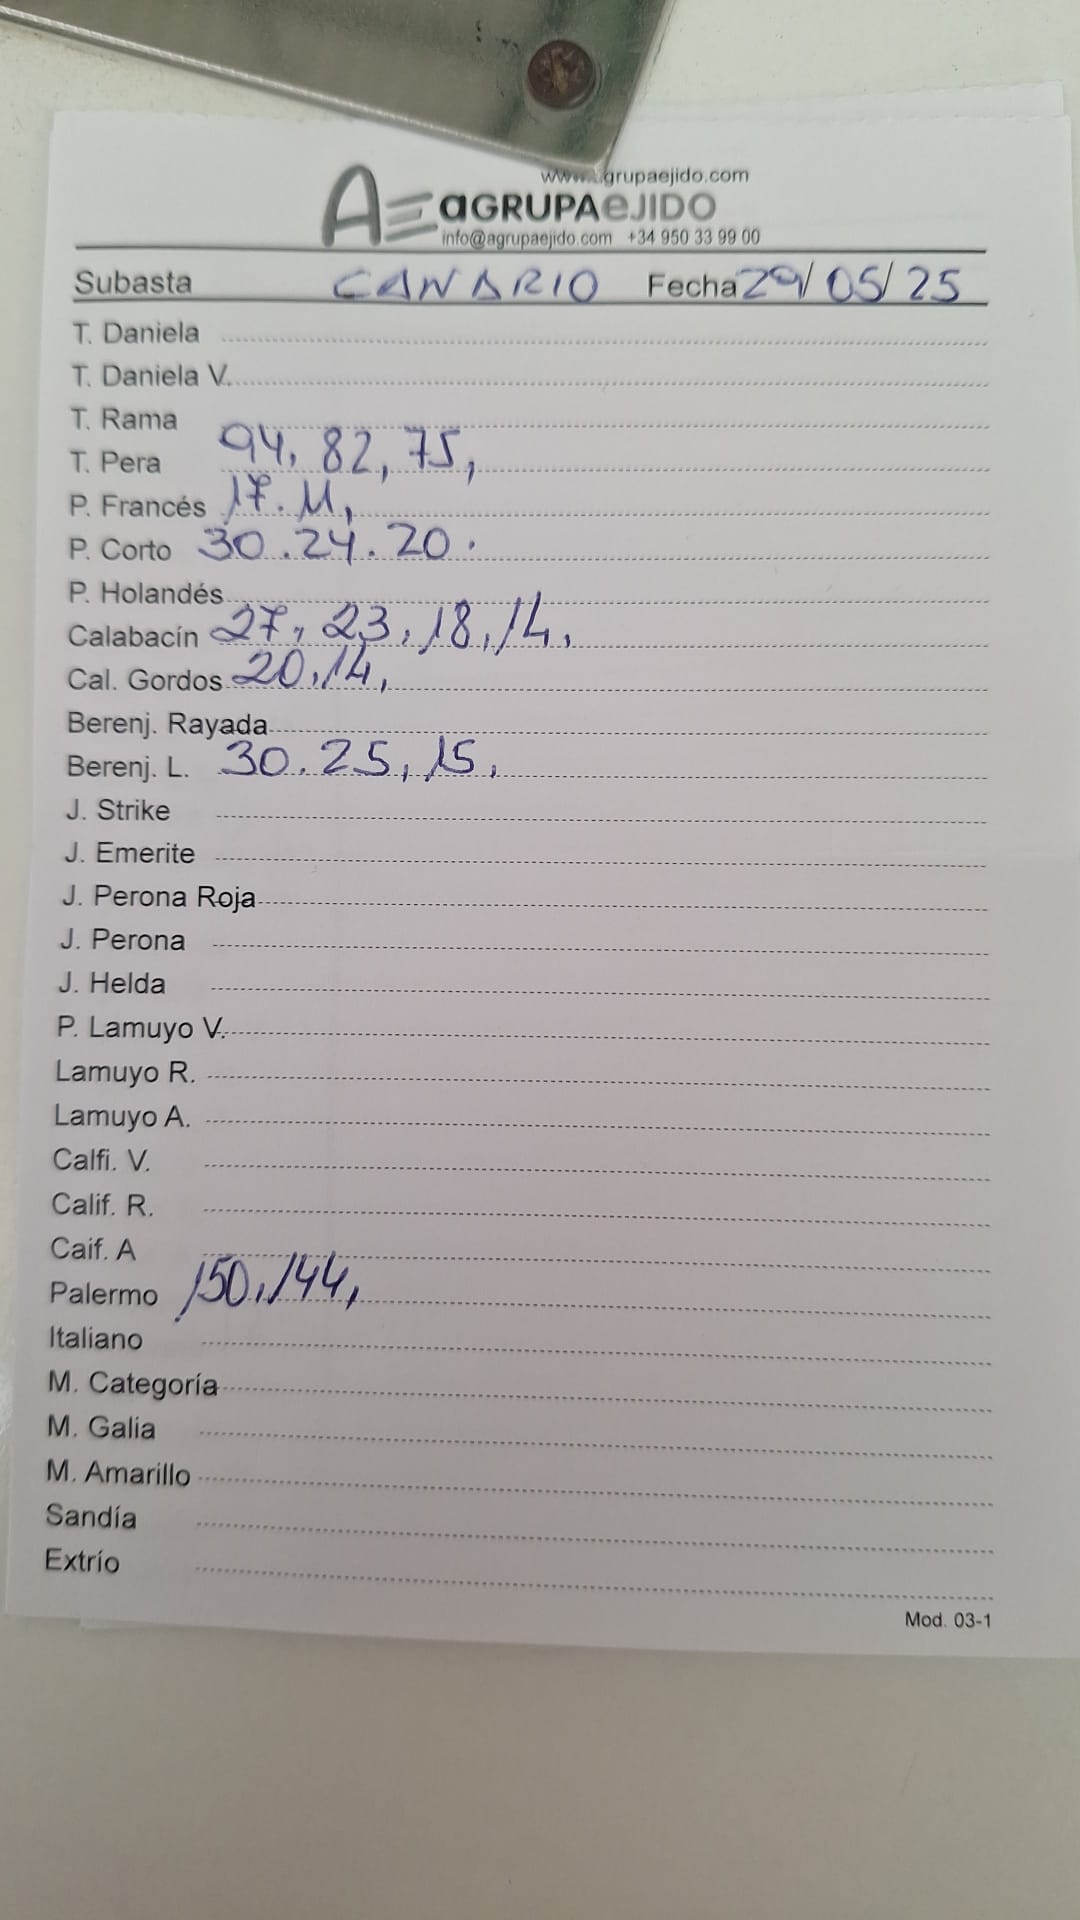 www.agrupaejido.com
AE aGRUPAeJIDO
info@agrupaejido.com +34 950 33 99 00
Subasta CANARIO Fecha 29/05/25
T. Daniela
T. Daniela V.
T. Rama
T. Pera 94, 82, 75,
P. Francés 17. 11,
P. Corto 30. 24. 20.
P. Holandés
Calabacín 27, 23, 18, 14,
Cal. Gordos 20, 14,
Berenj. Rayada
Berenj. L. 30. 25, 15,
J. Strike
J. Emerite
J. Perona Roja
J. Perona
J. Helda
P. Lamuyo V.
Lamuyo R.
Lamuyo A.
Calfi. V.
Calif. R.
Caif. A
Palermo 150, 144,
Italiano
M. Categoría
M. Galia
M. Amarillo
Sandía
Extrío
Mod. 03-1